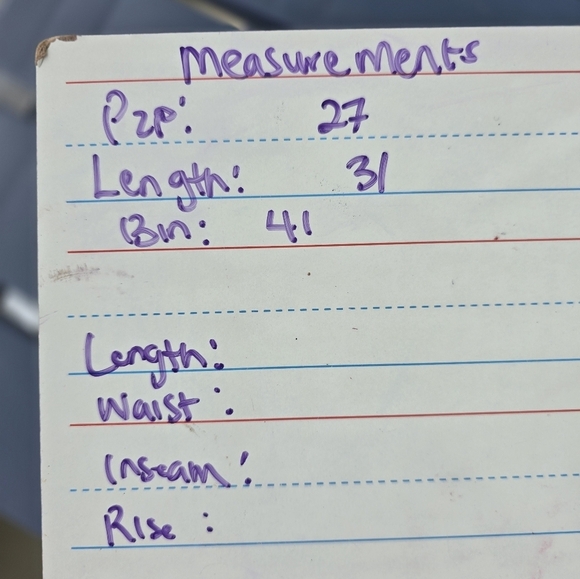 Measurements
P2P: 27
Length: 31
Bin: 41
Length:
Waist:
Inseam:
Rise: